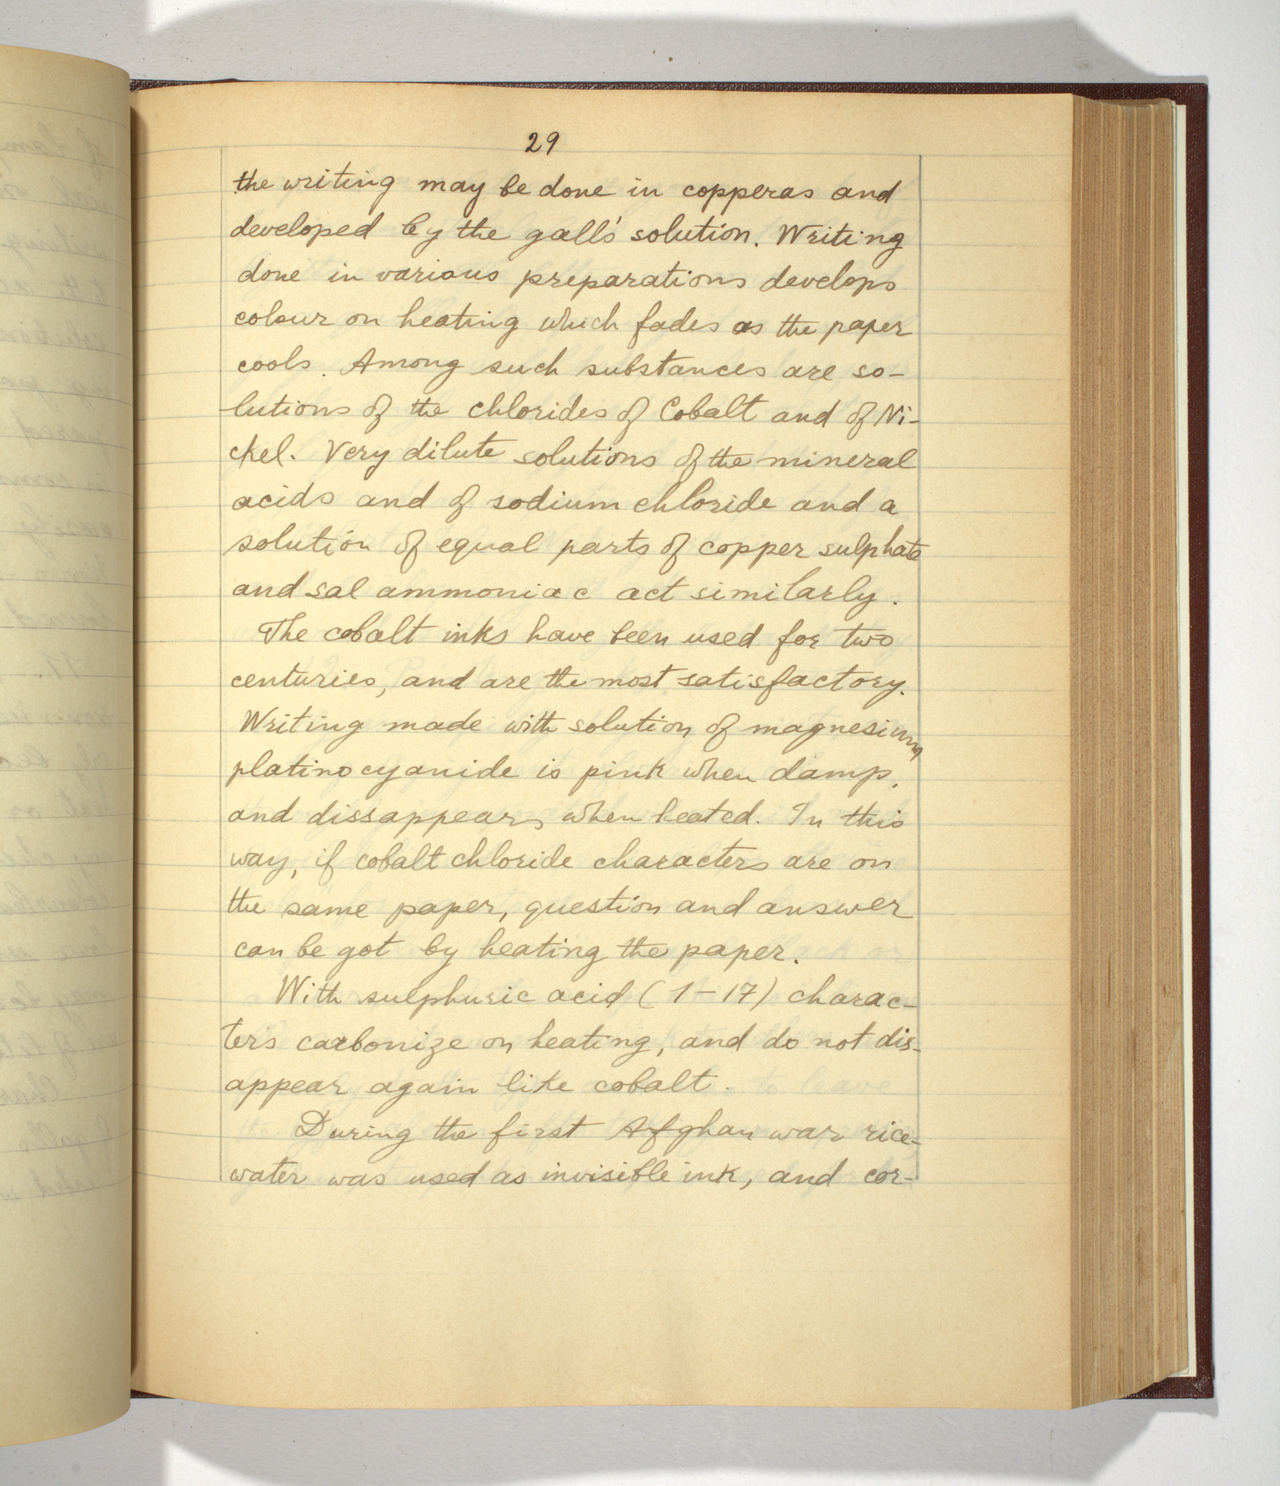 29
the writing may be done in copperas and
developed by the galls' solution. Writing
done in various preparations develops
colour on heating which fades as the paper
cools. Among such substances are so-
lutions of the chlorides of Cobalt and of Ni-
ckel. Very dilute solutions of the mineral
acids and of sodium chloride and a
solution of equal parts of copper sulphate
and sal ammoniac act similarly.
The cobalt inks have been used for two
centuries, and are the most satisfactory.
Writing made with solution of magnesium
platinocyanide is pink when damp,
and dissappears when heated. In this
way, if cobalt chloride characters are on
the same paper, question and answer
can be got by heating the paper.
With sulphuric acid (1-17) charac-
ters carbonize on heating, and do not dis-
appear again like cobalt.
During the first Afghan war rice-
water was used as invisible ink, and cor-